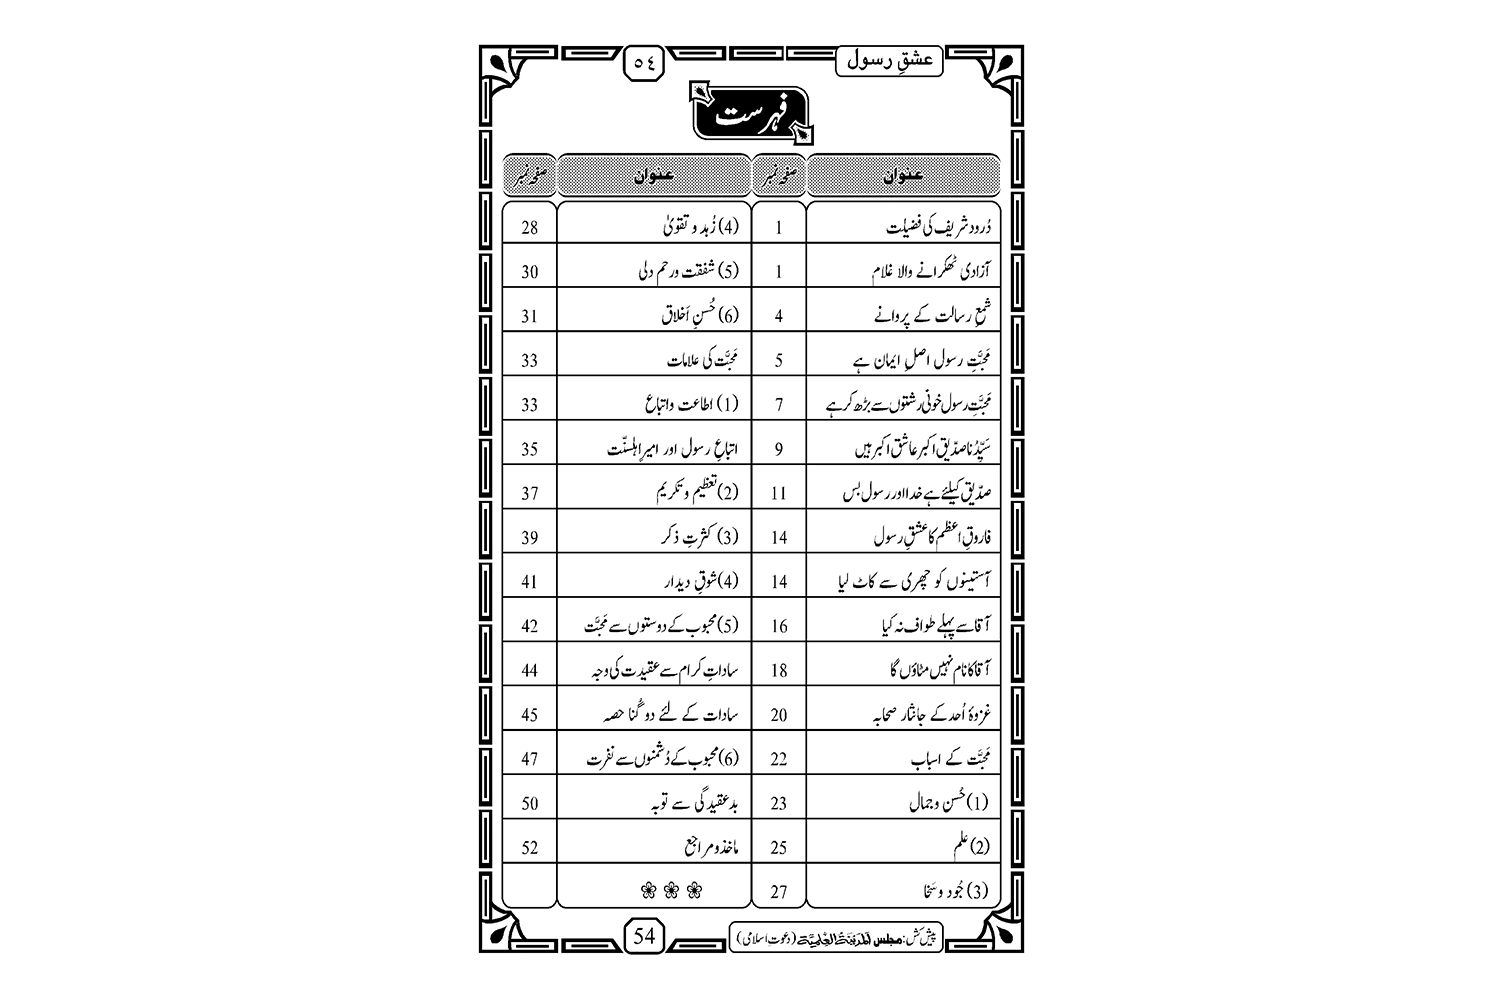 عشقِ رسول
٥٤
فہرست
عنوان صفحہ نمبر عنوان صفحہ نمبر
دُرود شریف کی فضیلت 1 (4) زُہد و تقویٰ 28
آزادی ٹھکرانے والا غلام 1 (5) شفقت ورحم دلی 30
شمعِ رسالت کے پروانے 4 (6) حُسنِ اَخلاق 31
مَحبَّتِ رسول اصلِ ایمان ہے 5 مَحبَّت کی علامات 33
مَحبَّتِ رسول خونی رشتوں سے بڑھ کر ہے 7 (1) اطاعت واتباع 33
سَیِّدُنا صدّیق اکبر عاشق اکبر ہیں 9 اتباعِ رسول اور امیرِ اہلسنّت 35
صدّیق کیلئے ہے خدا اور رسول بس 11 (2) تعظیم و تکریم 37
فاروقِ اعظم کا عشقِ رسول 14 (3) کثرتِ ذکر 39
آستینوں کو چھری سے کاٹ لیا 14 (4) شوقِ دیدار 41
آقا سے پہلے طواف نہ کیا 16 (5) محبوب کے دوستوں سے مَحبَّت 42
آقا کا نام نہیں مٹاؤں گا 18 ساداتِ کرام سے عقیدت کی وجہ 44
غزوۂ اُحد کے جانثار صحابہ 20 سادات کے لئے دو گُنا حصہ 45
مَحبَّت کے اسباب 22 (6) محبوب کے دُشمنوں سے نفرت 47
(1) حُسن وجمال 23 بدعقیدگی سے توبہ 50
(2) علم 25 ماخذومراجع 52
(3) جُود وسَخا 27
پیش کش: مجلس اَلْمَدِیْنَۃُ الْعِلْمِیَّۃ (دعوت اسلامی)
54